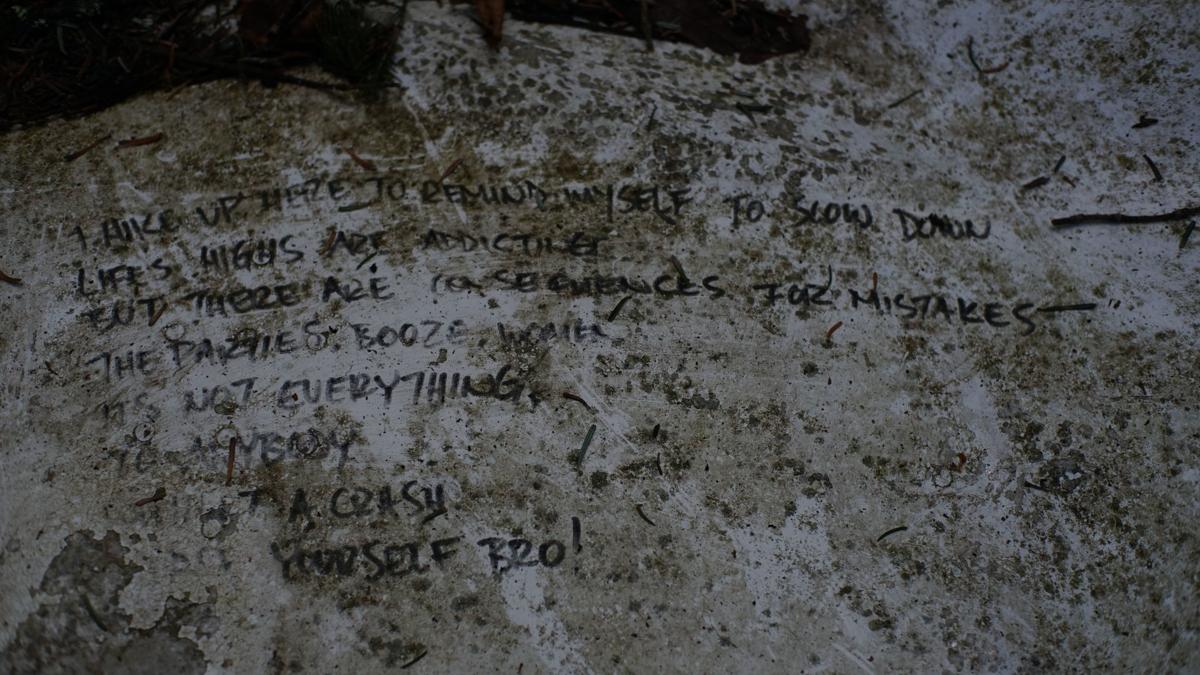 I HIKE UP HERE TO REMIND MYSELF TO SLOW DOWN
LIFES HIGHS ARE ADDICTING
BUT THERE ARE CONSEQUENCES FOR MISTAKES—"
THE PARTIES. BOOZE. WOMEN
IT'S NOT EVERYTHING.
TO ANYBODY
A CRASH
YOURSELF BRO!